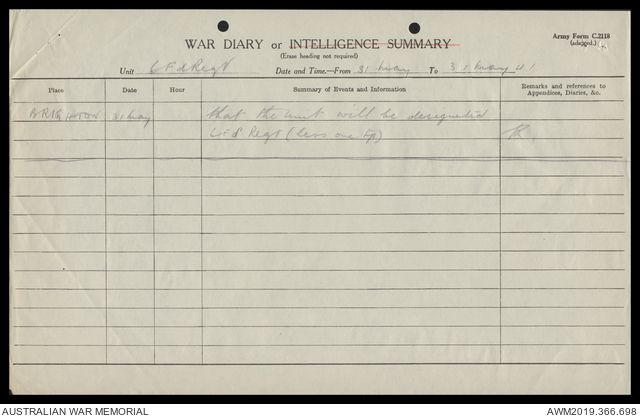 Army Form C.2118
WAR DIARY or INTELLIGENCE SUMMARY
(Erase heading not required)
Unit 6 Fd Regt Date and Time.—From 31 May To 31 May 41
Place Date Hour Summary of Events and Information Remarks and references to Appendices, Diaries, &c.
BRIGHTON 31 May that the unit will be designated
6 Fd Regt (less one tp)
AUSTRALIAN WAR MEMORIAL AWM2019.366.698